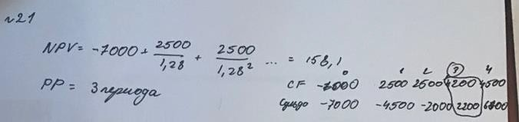 №21
NPV = -7000 + 2500/1,28 + 2500/1,28² ... = 158,1
PP = 3 периода
0 1 2 3 4
CF -7000 2500 2500 4200 4500
-7000 -4500 -2000 2200